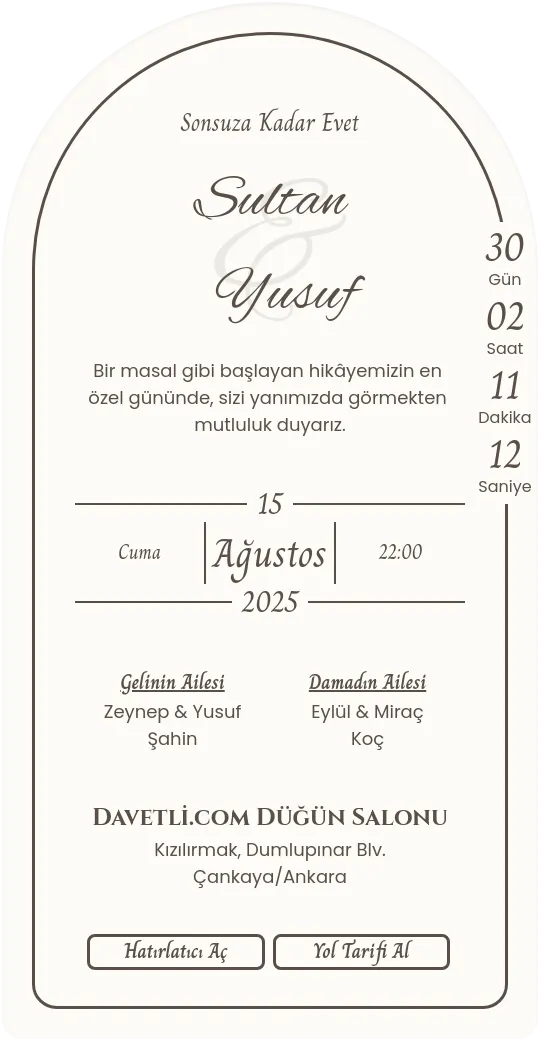 Sonsuza Kadar Evet
Sultan
&
Yusuf
30
Gün
02
Saat
11
Dakika
12
Saniye
Bir masal gibi başlayan hikâyemizin en
özel gününde, sizi yanımızda görmekten
mutluluk duyarız.
15
Cuma Ağustos 22:00
2025
Gelinin Ailesi
Zeynep & Yusuf
Şahin
Damadın Ailesi
Eylül & Miraç
Koç
Davetli.com Düğün Salonu
Kızılırmak, Dumlupınar Blv.
Çankaya/Ankara
Hatırlatıcı Aç
Yol Tarifi Al